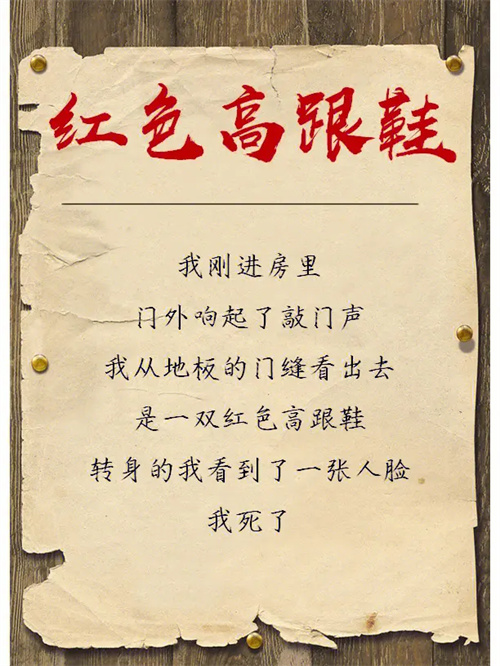 红色高跟鞋
我刚进房里
门外响起了敲门声
我从地板的门缝看出去
是一双红色高跟鞋
转身的我看到了一张人脸
我死了